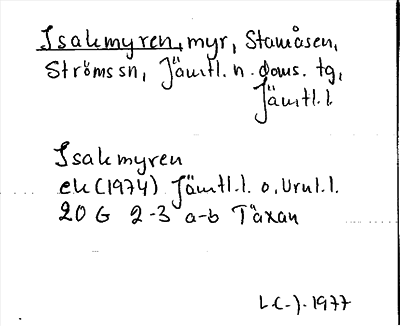 Isakmyren, myr, Stamåsen,
Ströms sn, Jämtl. n. doms. tg,
Jämtl. l.
Isakmyren
ek (1974) Jämtl. l. o. Vrnl. l.
20 G 2-3 a-b Täxan
L(-)-1977